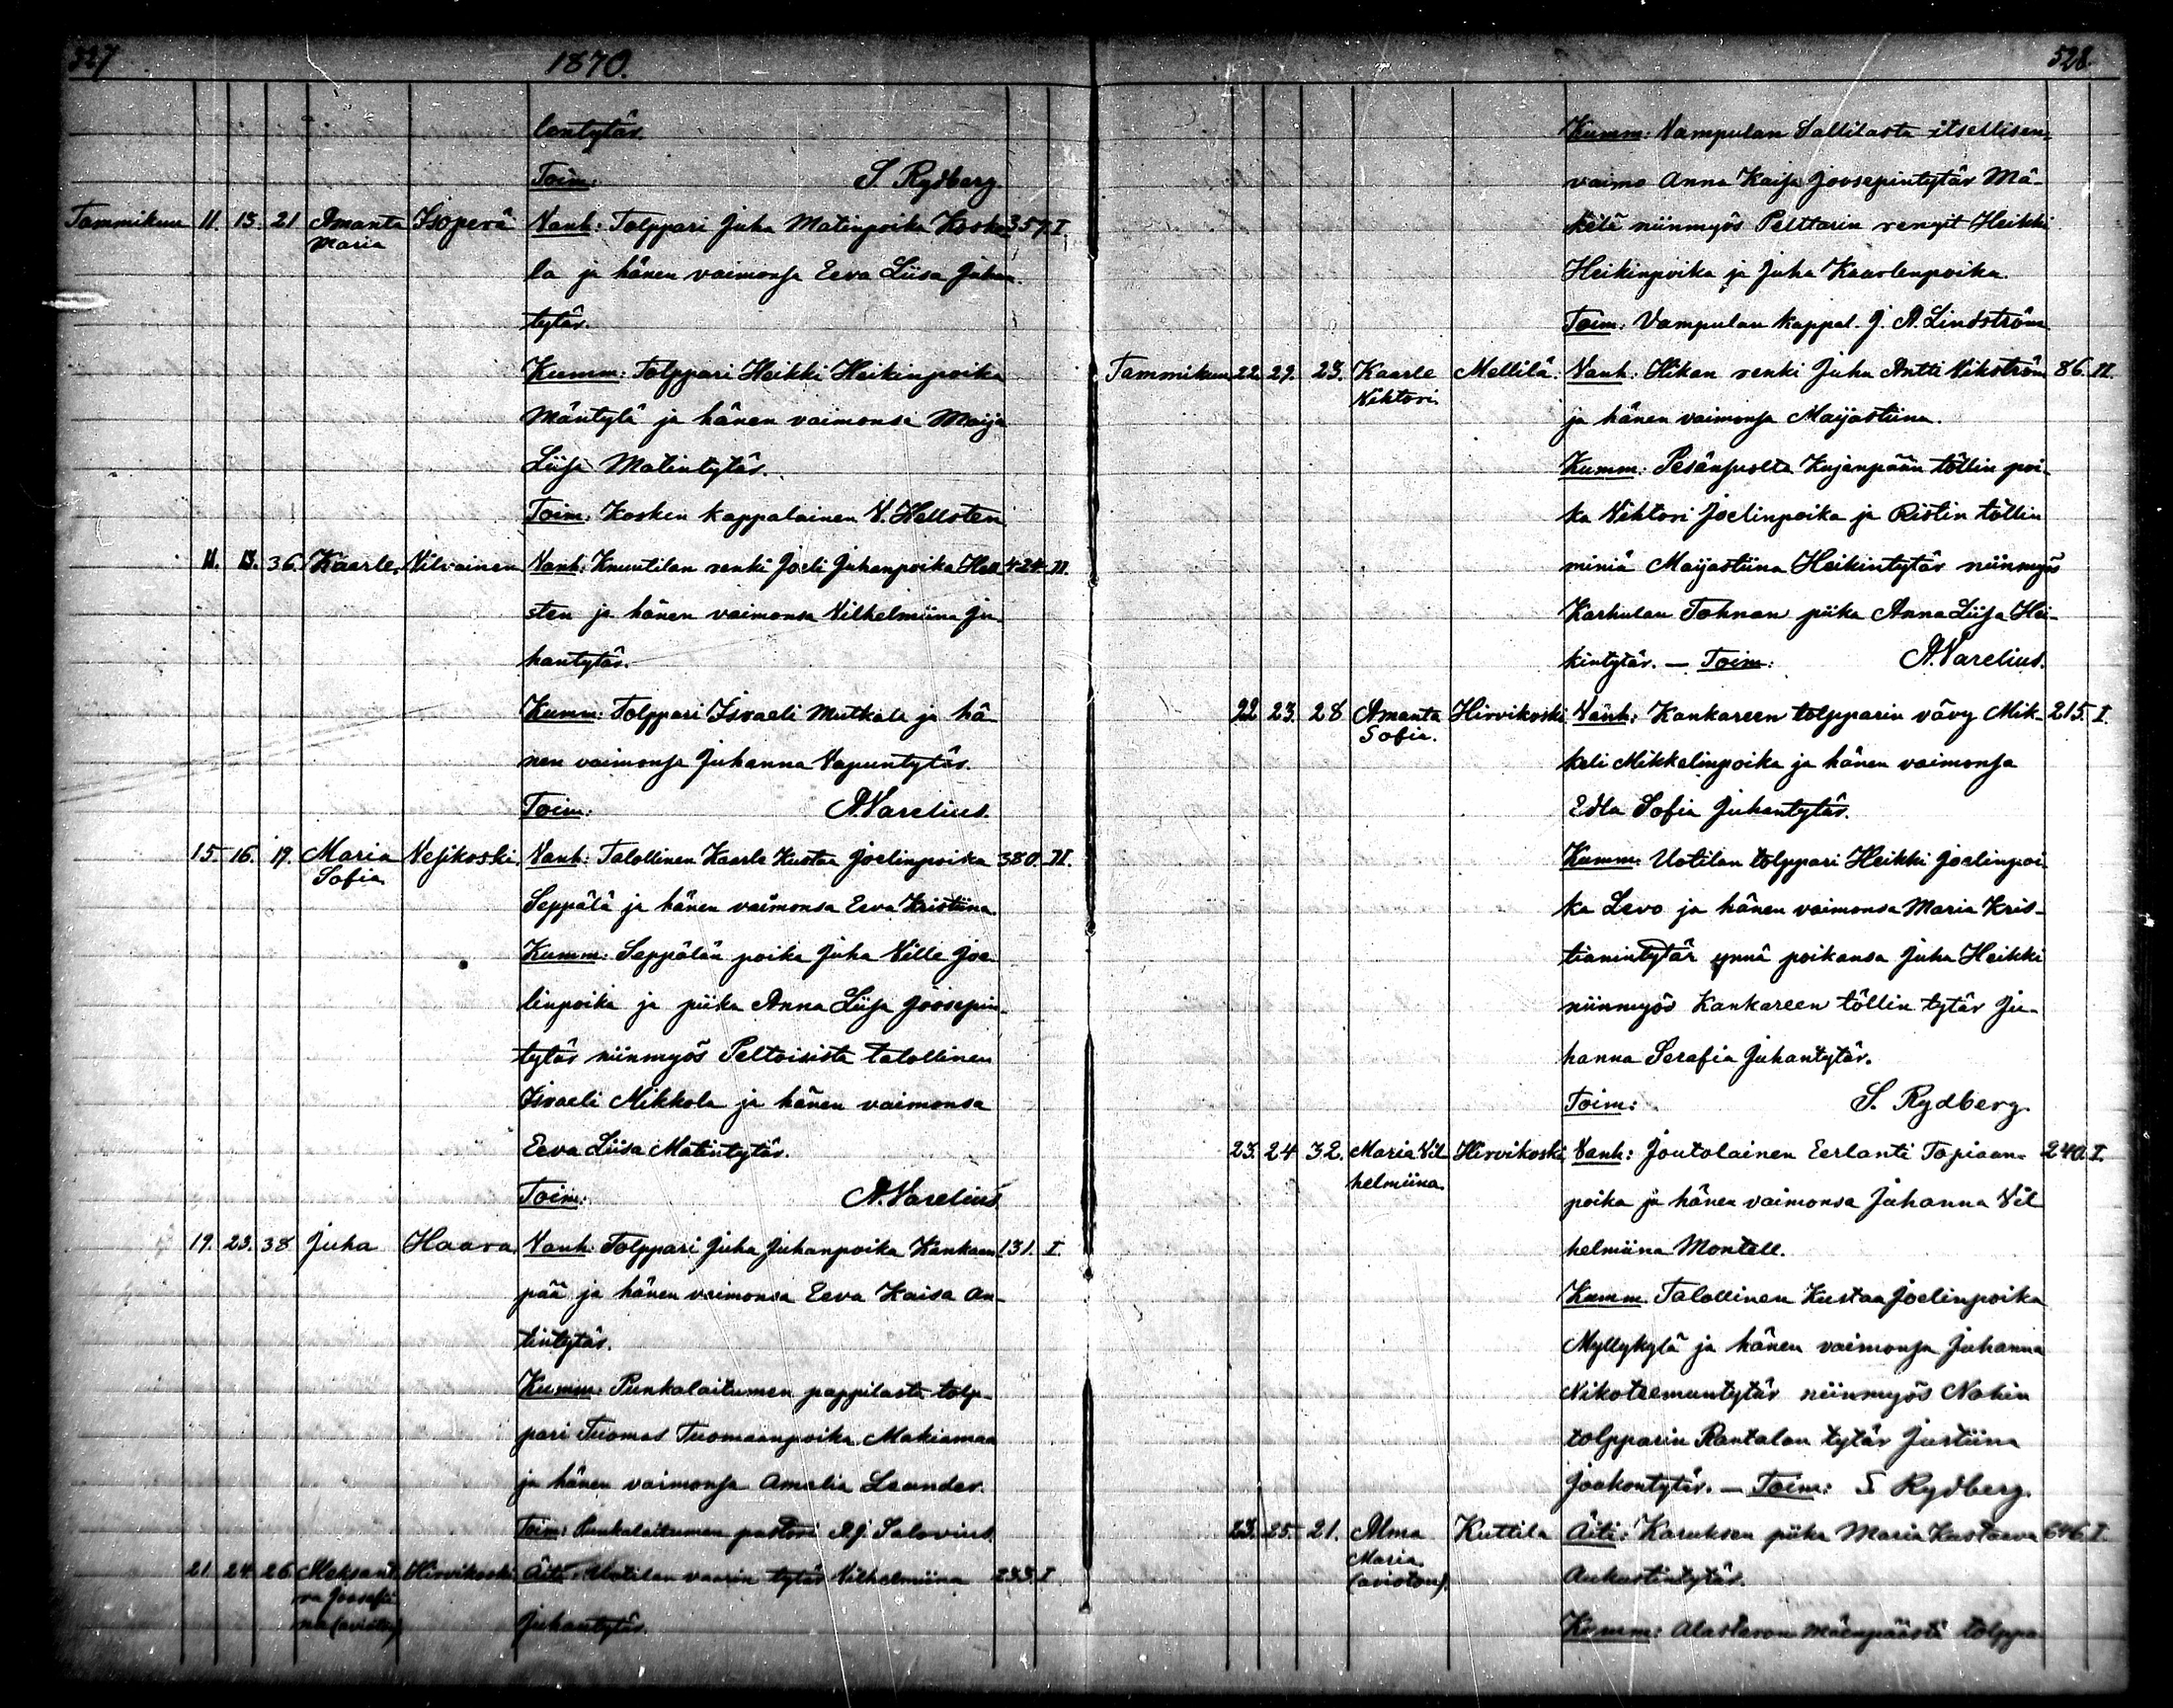 527 1870.
lentytär.
Toim: S. Rydberg.
Tammikuu 11. 13. 21 Amanta Isoperä Vanh: Tolppari Juha Matinpoika Koske- 357. I
Maria
la ja hänen vaimonsa Eeva Liisa Juhan-
tytär.
Kumm: Tolppari Heikki Heikinpoika
Mäntylä ja hänen vaimonsa Maija
Liisa Matintytär.
Toim: Kosken kappalainen V. Hellsten
11. 13. 36. Kaarle. Vilvainen Vanh: Knuutilan renki Joeli Juhanpoika Hell- 424. II.
sten ja hänen vaimonsa Vilhelmiina Ju-
hantytär.
Kumm: Tolppari Israeli Mutkala ja hä-
nen vaimonsa Juhanna Vapuntytär.
Toim: A. Varelius.
15. 16. 19. Maria Vesikoski. Vanh: Talollinen Kaarle Kustaa Joelinpoika 380. II.
Sofia
Seppälä ja hänen vaimonsa Eeva Kristiina.
Kumm: Seppälän poika Juha Ville Joe-
linpoika ja piika Anna Liisa Joosepin-
tytär niinmyös Peltoisista talollinen
Israeli Mikkola ja hänen vaimonsa
Eeva Liisa Matintytär.
Toim: A. Varelius.
19. 23. 38 Juha Haara. Vanh: Tolppari Juha Juhanpoika Kankaan- 131. I.
pää ja hänen vaimonsa Eeva Kaisa An-
tintytär.
Kumm: Punkalaitumen pappilasta tolp-
pari Tuomas Tuomaanpoika Makiamaa
ja hänen vaimonsa Amalia Leander.
Toim: Punkalaitumen pastori A. J. Salovius.
21. 24. 26. Aleksant- Hirvikoski Äiti: Uotilan vaarin tytär Vilhelmiina 233. I
ra Joosefii-
na (avioton) Juhantytär.
528.
Kumm: Vampulan Sallilasta itsellisen-
vaimo Anna Kaisa Joosepintytär Mä-
kelä niinmyös Pelttarin rengit Heikki
Heikinpoika ja Juha Kaarlenpoika.
Toim: Vampulan kappal. J. A. Lindström
Tammikuu 22. 29. 23. Kaarle Mellilä. Vanh: Hikan renki Juha Antti Vikström 86. II.
Viktori.
ja hänen vaimonsa Maijastiina.
Kumm: Pesänsuolta Kujanpään töllin poi-
ka Viktori Joelinpoika ja Ristin töllin
miniä Maijastiina Heikintytär niinmyös
Karhulan Tohnan piika Anna Liisa Hei-
kintytär. — Toim: A. Varelius.
22 23. 28 Amanta Hirvikoski Vanh: Kankareen tolpparin vävy Mik- 215. I.
Sofia.
keli Mikkelinpoika ja hänen vaimonsa
Edla Sofia Juhantytär.
Kumm: Uotilan tolppari Heikki Joelinpoi-
ka Levo ja hänen vaimonsa Maria Kris-
tianintytär ynnä poikansa Juha Heikki
niinmyös Kankareen töllin tytär Ju-
hanna Serafia Juhantytär.
Toim: S. Rydberg.
23. 24 32. Maria Vil- Hirvikoski Vanh: Joutolainen Eerlanti Topiaan- 240. I.
helmiina.
poika ja hänen vaimonsa Juhanna Vil-
helmiina Montell.
Kumm. Talollinen Kustaa Joelinpoika
Myllykylä ja hänen vaimonsa Juhanna
Nikoteemuntytär niinmyös Nohin
tolpparin Rantalan tytär Justiina
Jaakontytär. — Toim: S Rydberg.
23. 25. 21. Alma Kuttila Äiti: Karuksen piika Maria Kustaava 646. I.
Maria.
(aviotou). Aukustintytär.
Kumm: Alastaron Mäenpäästä tolppa-